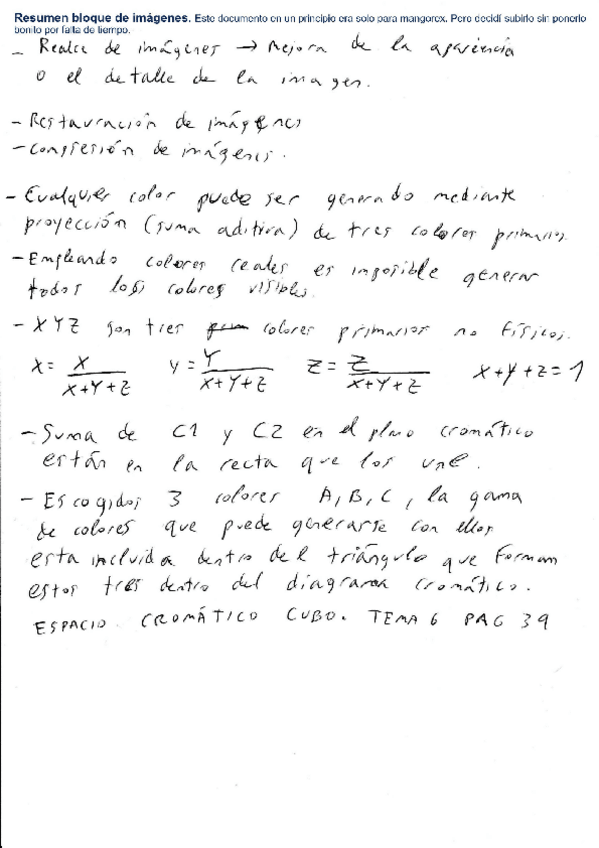 Resumen bloque de imágenes. Este documento en un principio era solo para mangorex. Pero decidí subirlo sin ponerlo
bonito por falta de tiempo.
- Realce de imágenes → Mejora de la apariencia
o el detalle de la imagen.
- Restauración de imágenes
- Compresión de imágenes.
- Cualquier color puede ser generado mediante
proyección (suma aditiva) de tres colores primarios.
- Empleando colores reales es imposible generar
todos los colores visibles.
- XYZ son tres colores primarios no físicos.
x = X / (X+Y+Z) y = Y / (X+Y+Z) z = Z / (X+Y+Z) x+y+z=1
- Suma de C1 y C2 en el plano cromático
están en la recta que los une.
- Escogidos 3 colores A, B, C, la gama
de colores que puede generarse con ellos
esta incluida dentro del triángulo que forman
estos tres dentro del diagrama cromático.
ESPACIO CROMÁTICO CUBO. TEMA 6 PAG 39